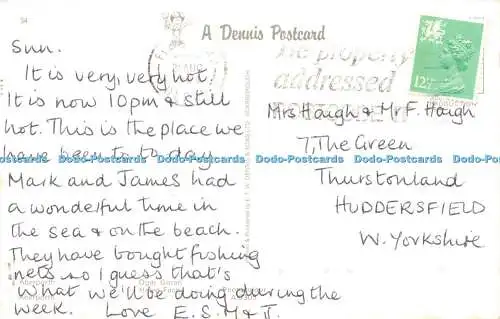 34
A Dennis Postcard
Sun.
It is very, very hot.
It is now 10pm & still
hot. This is the place we
have been to to-day
Mark and James had
a wonderful time in
the sea & on the beach.
They have bought fishing
nets so I guess that's
what we'll be doing during the
week. Love E.S.M & J.
be properly
addressed
12½
Mrs Haigh & Mr F. Haigh
7, The Green
Thurstonland
HUDDERSFIELD
W. Yorkshire
Dodo-Postcards Dodo-Postcards Dodo-Postcards Dodo-Postcards Dodo-Postcards Dodo-Postcards
Aberporth